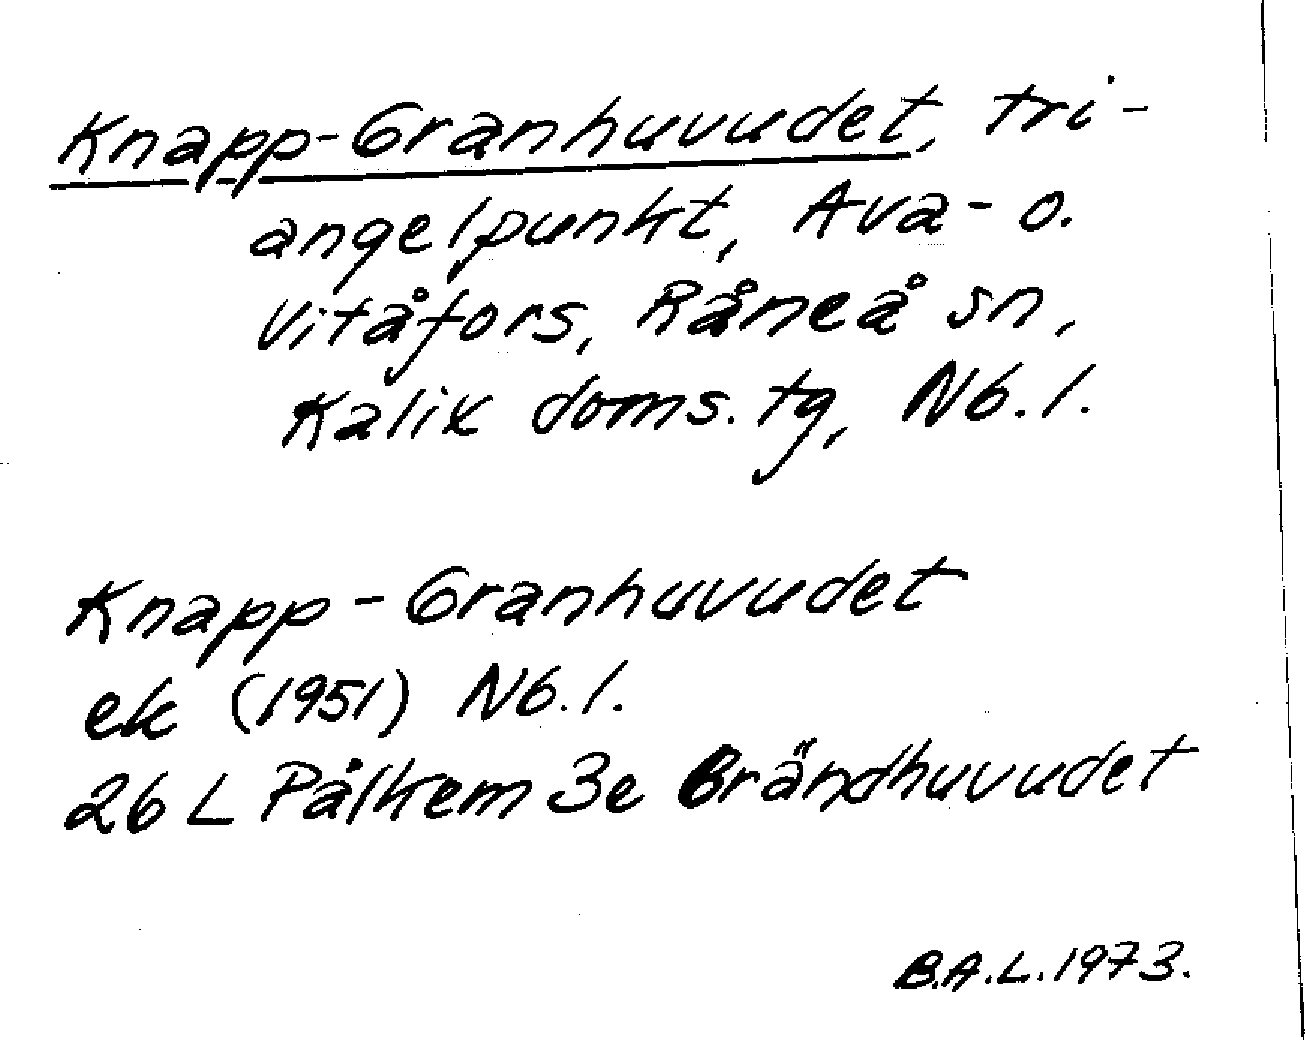 Knapp-Granhuvudet, tri-
angelpunkt, Ava- o.
Vitåfors, Råneå sn,
Kalix doms. tg, Nb. l.
Knapp-Granhuvudet
ek (1951) Nb. l.
26 L Pålkem 3e Brändhuvudet
B.A.L. 1973.